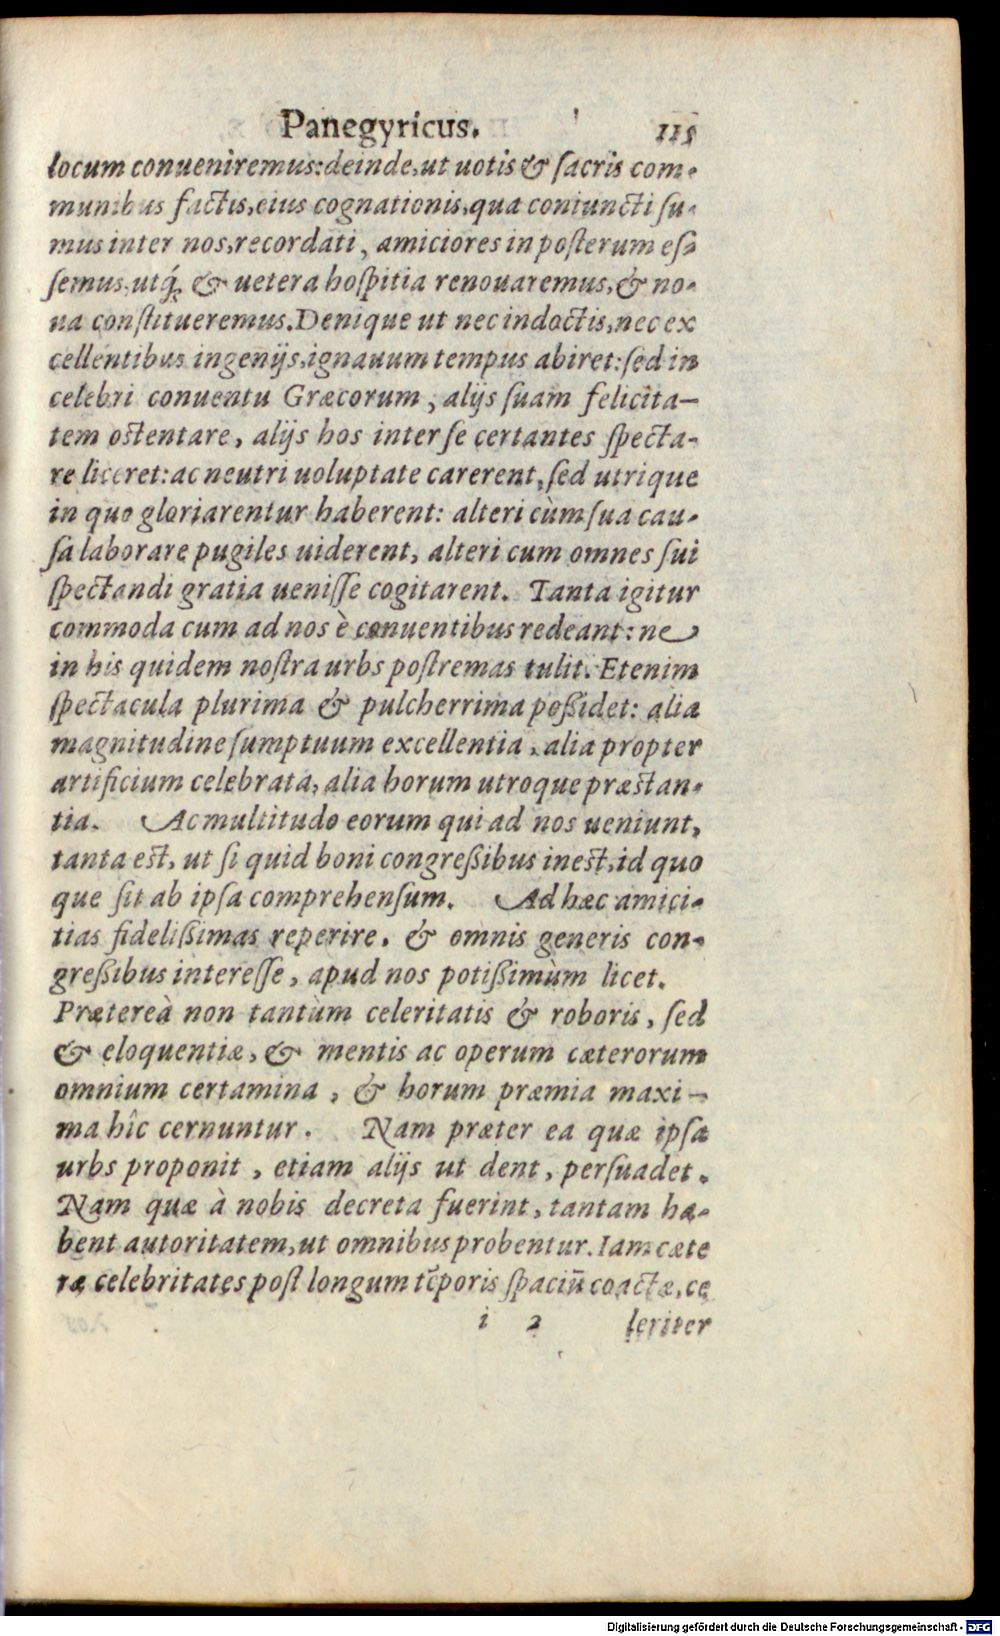 Panegyricus. 115
locum conueniremus: deinde, ut uotis & sacris com-
munibus factis, eius cognationis, qua coniuncti su-
mus inter nos, recordati, amiciores in posterum es-
semus, utq́; & uetera hospitia renouaremus, & no-
ua constitueremus. Denique ut nec indoctis, nec ex
cellentibus ingenijs, ignauum tempus abiret: sed in
celebri conuentu Græcorum, alijs suam felicita-
tem ostentare, alijs hos inter se certantes specta-
re liceret: ac neutri uoluptate carerent, sed utrique
in quo gloriarentur haberent: alteri cùm sua cau-
sa laborare pugiles uiderent, alteri cum omnes sui
spectandi gratia uenisse cogitarent. Tanta igitur
commoda cum ad nos è conuentibus redeant: ne
in his quidem nostra urbs postremas tulit. Etenim
spectacula plurima & pulcherrima poßidet: alia
magnitudine sumptuum excellentia, alia propter
artificium celebrata, alia horum utroque præstan-
tia. Ac multitudo eorum qui ad nos ueniunt,
tanta est, ut si quid boni congreßibus inest, id quo
que sit ab ipsa comprehensum. Ad hæc amici-
tias fidelißimas reperire, & omnis generis con-
greßibus interesse, apud nos potißimùm licet.
Prætereà non tantùm celeritatis & roboris, sed
& eloquentiæ, & mentis ac operum cæterorum
omnium certamina, & horum præmia maxi-
ma hîc cernuntur. Nam præter ea quæ ipsa
urbs proponit, etiam alijs ut dent, persuadet.
Nam quæ à nobis decreta fuerint, tantam ha-
bent autoritatem, ut omnibus probentur. Iam cæte
ræ celebritates post longum tēporis spaciū coactæ, ce
i 2 leriter
Digitalisierung gefördert durch die Deutsche Forschungsgemeinschaft - DFG